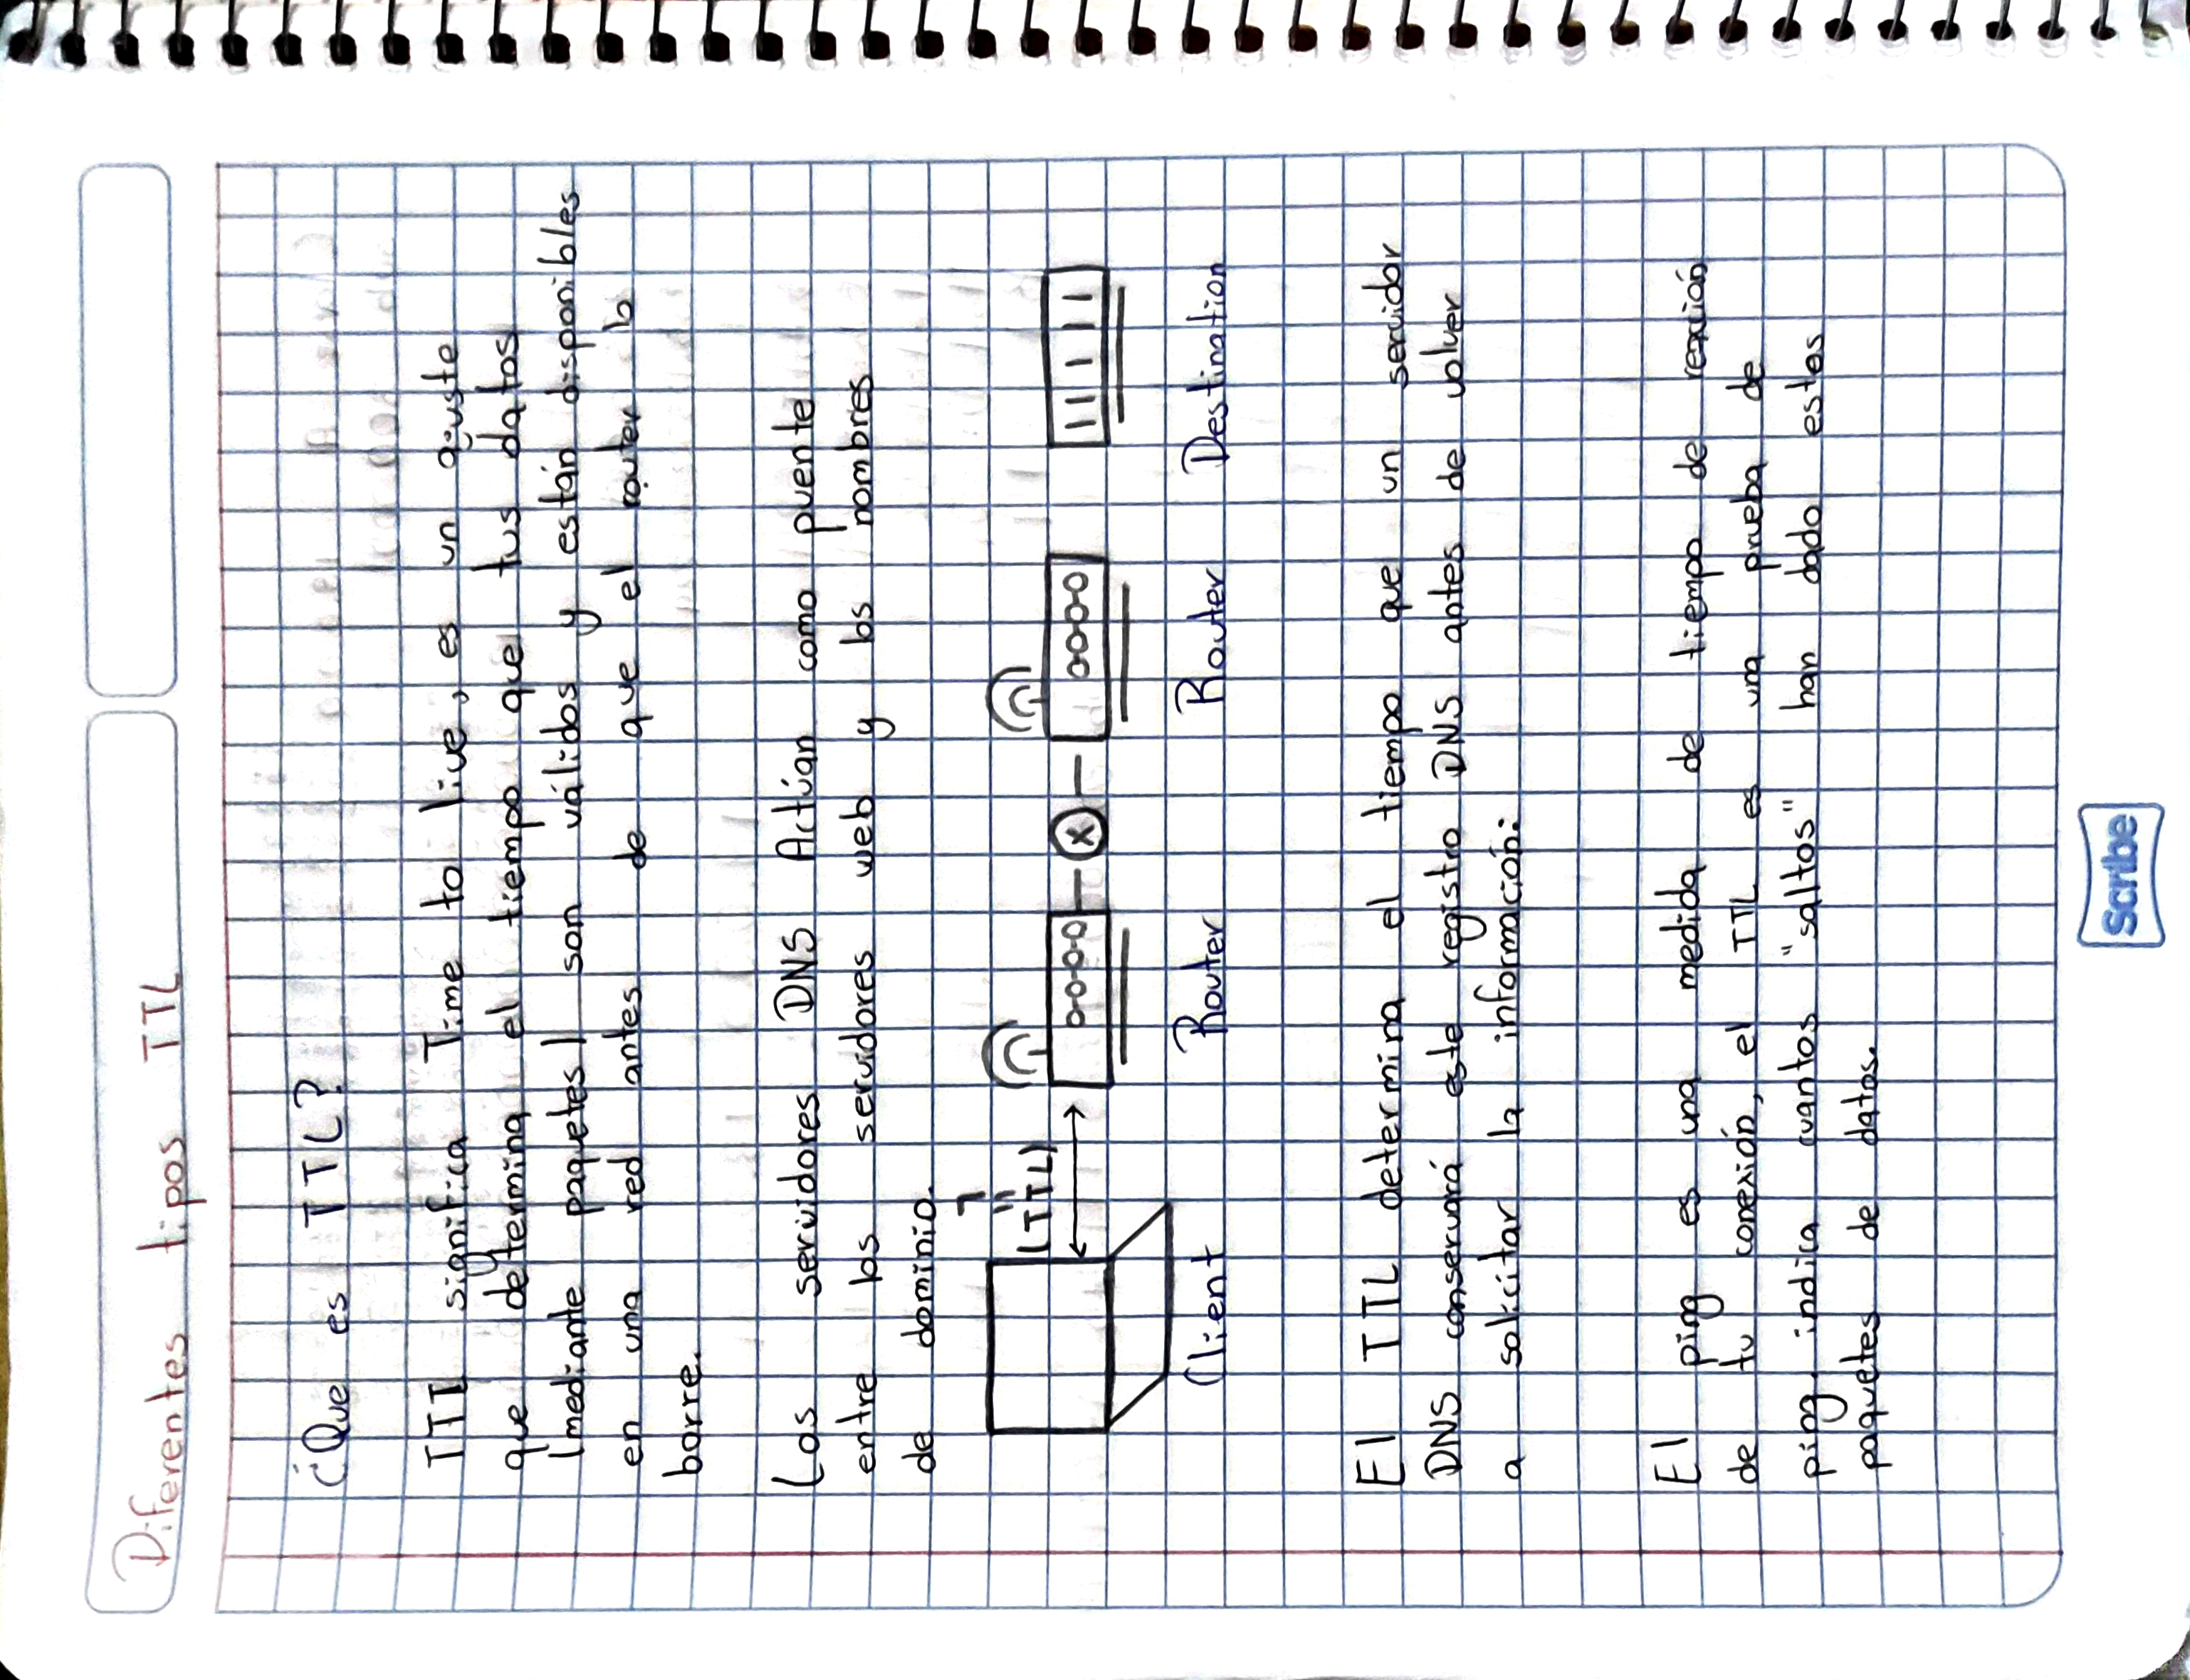 Diferentes tipos TTL
¿Que es TTL?
TTL significa Time to live, es un ajuste
que determina el tiempo que tus datos
(mediante paquetes) son válidos y están disponibles
en una red antes de que el router lo
borre.
Los servidores DNS Actúan como puente
entre los servidores web y los nombres
de dominio.
(TTL)
X
Client Router Router Destination
El TTL determina el tiempo que un servidor
DNS conservará este registro DNS antes de volver
a solicitar la información:
El ping es una medida de tiempo de reacción
de tu conexión, el TTL es una prueba de
ping indica cuantos "saltos" han dado estos
paquetes de datos.
Scribe